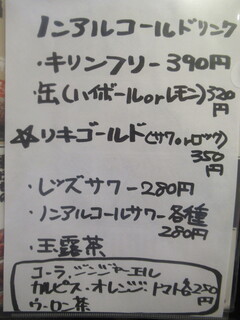 ノンアルコールドリンク
・キリンフリー 390円
・缶(ハイボールorレモン)320円
☆リキゴールド(サワorロック)
350円
・レッズサワー 280円
・ノンアルコールサワー各種
280円
・玉露茶
コーラ、ジンジャーエール
カルピス・オレンジ・トマト各250円
ウーロン茶